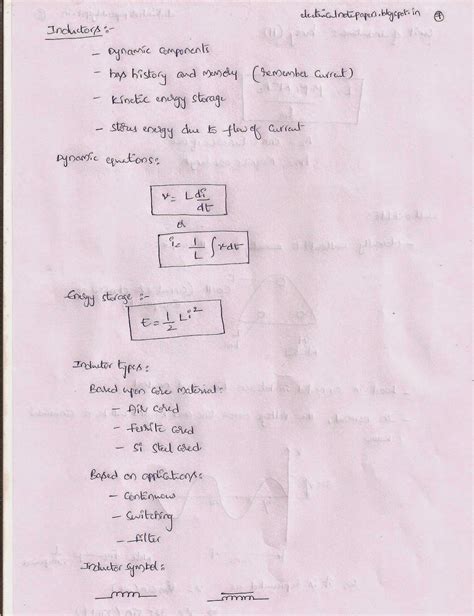 electricalnotepapers.blogspot.in 9
Inductors :-
- Dynamic components
- has history and memory (remember current)
- kinetic energy storage
- stores energy due to flow of current
Dynamic equations:
v = L di/dt
or
i = 1/L ∫ v dt
Energy storage :-
E = 1/2 L i²
Inductor types:
Based upon core material:
- Air cored
- Ferrite cored
- Si steel cored
Based on applications:
- Continuous
- Switching
- filter
Inductor symbol: